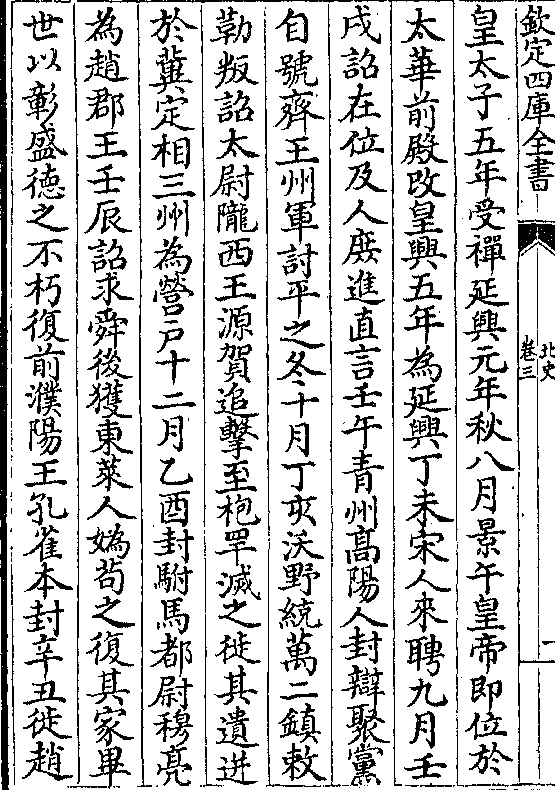 欽定四庫全書
北史
卷三
一
皇太子五年受禪延興元年秋八月景午皇帝即位於
太華前殿改皇興五年為延興丁未宋人來聘九月壬
戌詔在位及人庶進直言壬午青州髙陽人封辯聚黨
自號齊王州軍討平之冬十月丁亥沃野統萬二鎮敕
勒叛詔太尉隴西王源賀追擊至枹罕滅之徙其遺迸
於冀定相三州為營戸十二月乙酉封駙馬都尉穆亮
為趙郡王壬辰詔求舜後獲東萊人媯苟之復其家畢
世以彰盛德之不朽復前濮陽王孔雀本封辛丑徙趙